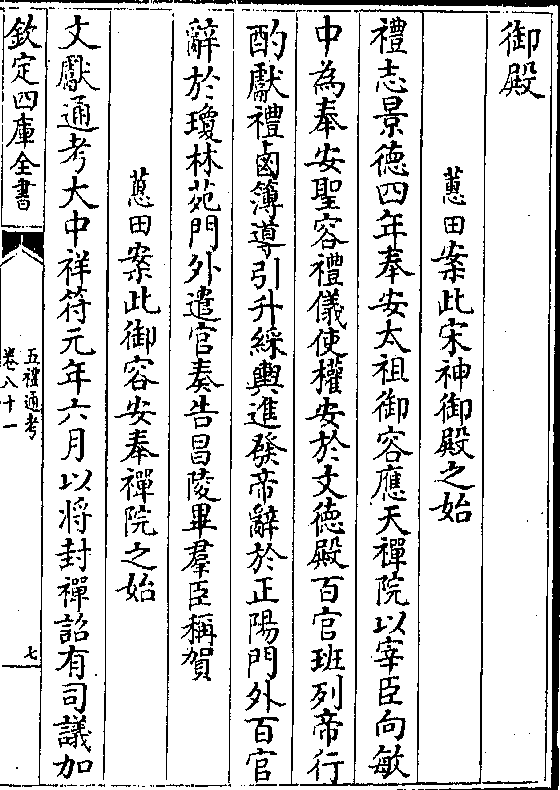 御殿
蕙田案此宋神御殿之始
禮志景德四年奉安太祖御容應天禪院以宰臣向敏
中為奉安聖容禮儀使權安於文德殿百官班列帝行
酌獻禮鹵簿導引升綵輿進發帝辭於正陽門外百官
辭於瓊林苑門外遣官奏告昌陵畢羣臣稱賀
蕙田案此御容安奉禪院之始
文獻通考大中祥符元年六月以將封禪詔有司議加
欽定四庫全書
五禮通考
卷八十一
七